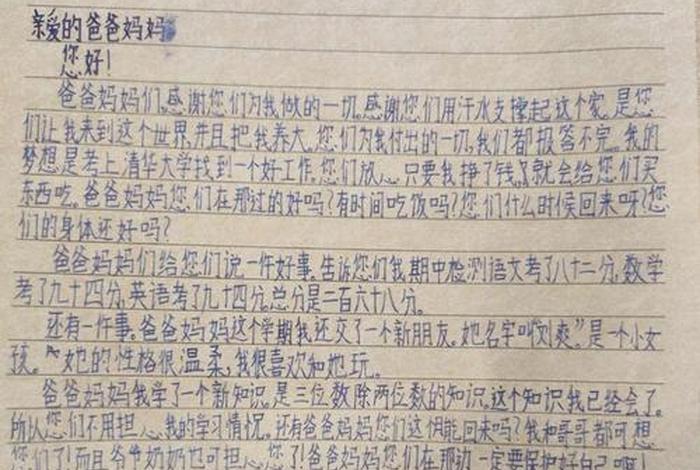 亲爱的爸爸妈妈
您好!
爸爸妈妈们,感谢您们为我做的一切,感谢您们用汗水支撑起这个家,是您
们让我来到这个世界,并且把我养大,您们为我付出的一切,我们都报答不完。我的
梦想是考上清华大学找到一个好工作。您们放心,只要我挣了钱,就会给您们买
东西吃。爸爸妈妈您们在那过的好吗?有时间吃饭吗?您们什么时候回来呀?您
们的身体还好吗?
爸爸妈妈们给您们说一件好事。告诉您们我期中检测语文考了八十二分,数学
考了九十四分,英语考了九十四分。总分是二百六十八分。
还有一件事。爸爸妈妈这个学期我还交了一个新朋友。她名字叫“刘爽”是一个小女
孩。她的性格很温柔,我很喜欢和她玩。
爸爸妈妈我学了一个新知识,是三位数除两位数的知识。这个知识我已经会了。
所以您们不用担心我的学习情况。还有爸爸妈妈您们这个月能回来吗?我和哥哥都可想
您们了!而且爷爷奶奶也可担心您了!爸爸妈妈您们在那边一定要保护好自己啊!